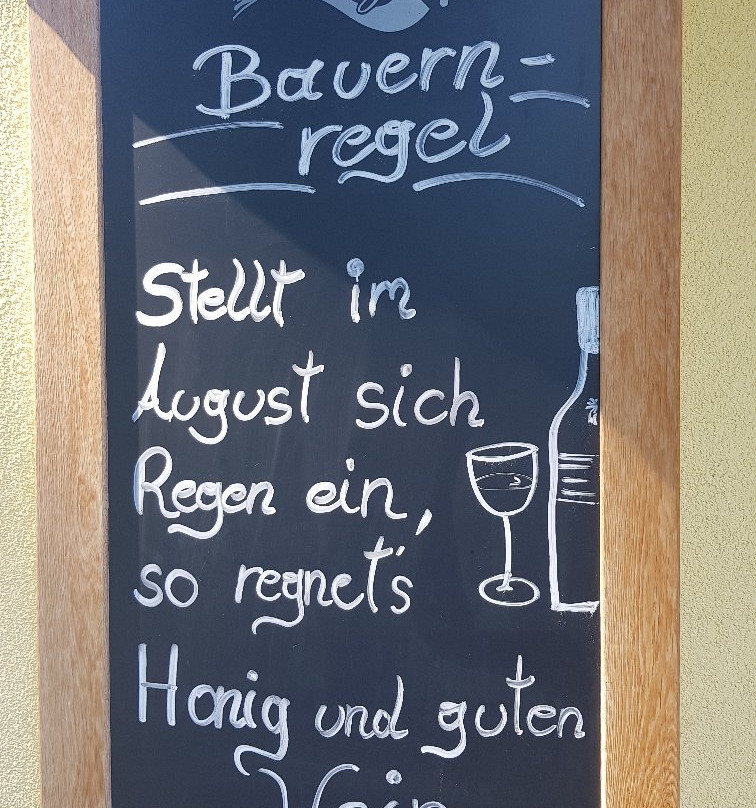 Bauern-
regel
Stellt im
August sich
Regen ein,
so regnet's
Honig und guten
Wein